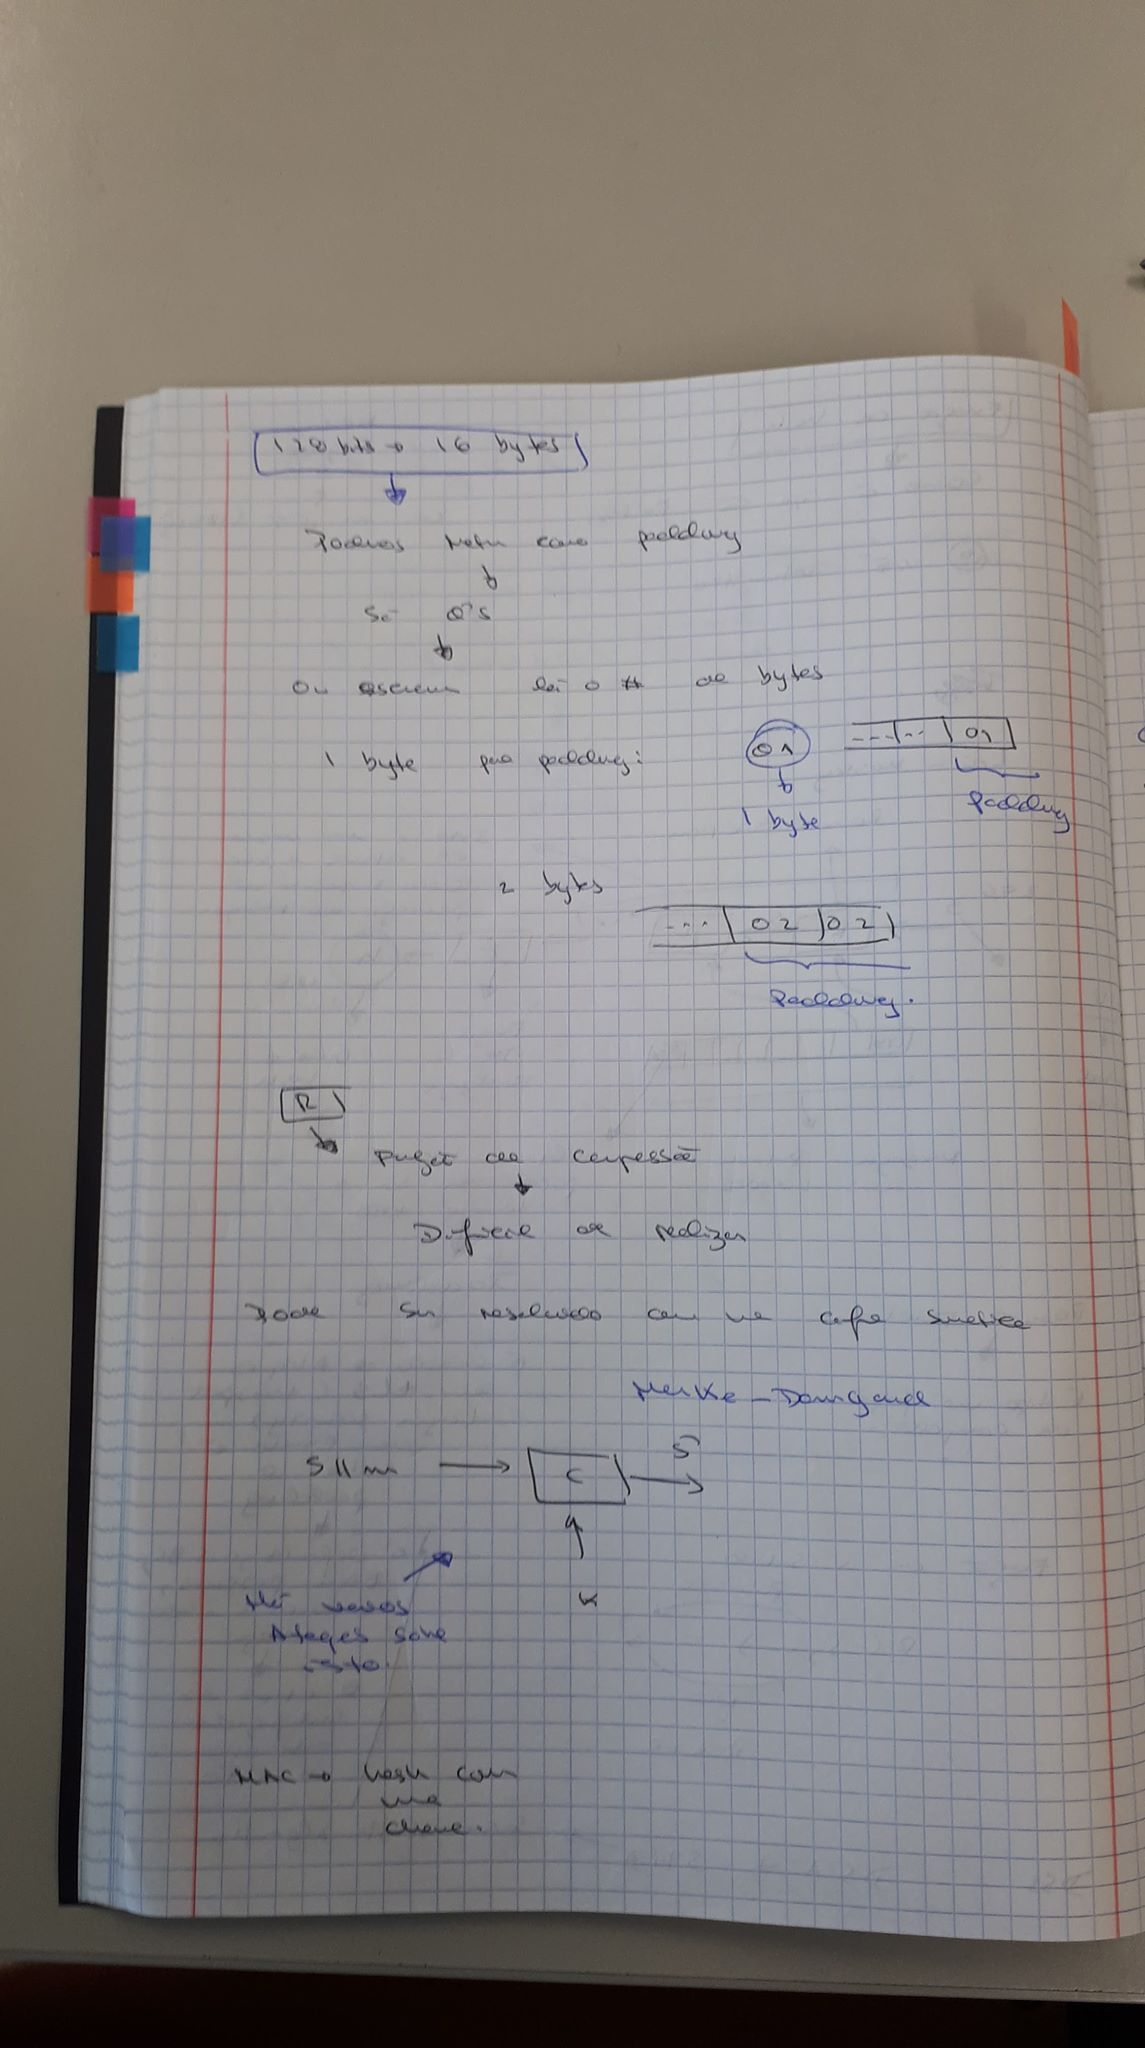 128 bits → 16 bytes
Podemos meter como padding
Só 0's
Ou escrevem lá o # de bytes
1 byte para padding: 01 ... .. 01
1 byte padding
2 bytes
... 02 02
Padding.
R
Função de compressão
Difícil de realizar
Pode ser resolvido com uma cifra simétrica
Merkle-Damgard
S || m → C → S
K
Há vários
Ataques sobre
isto.
MAC → hash com
uma
chave.